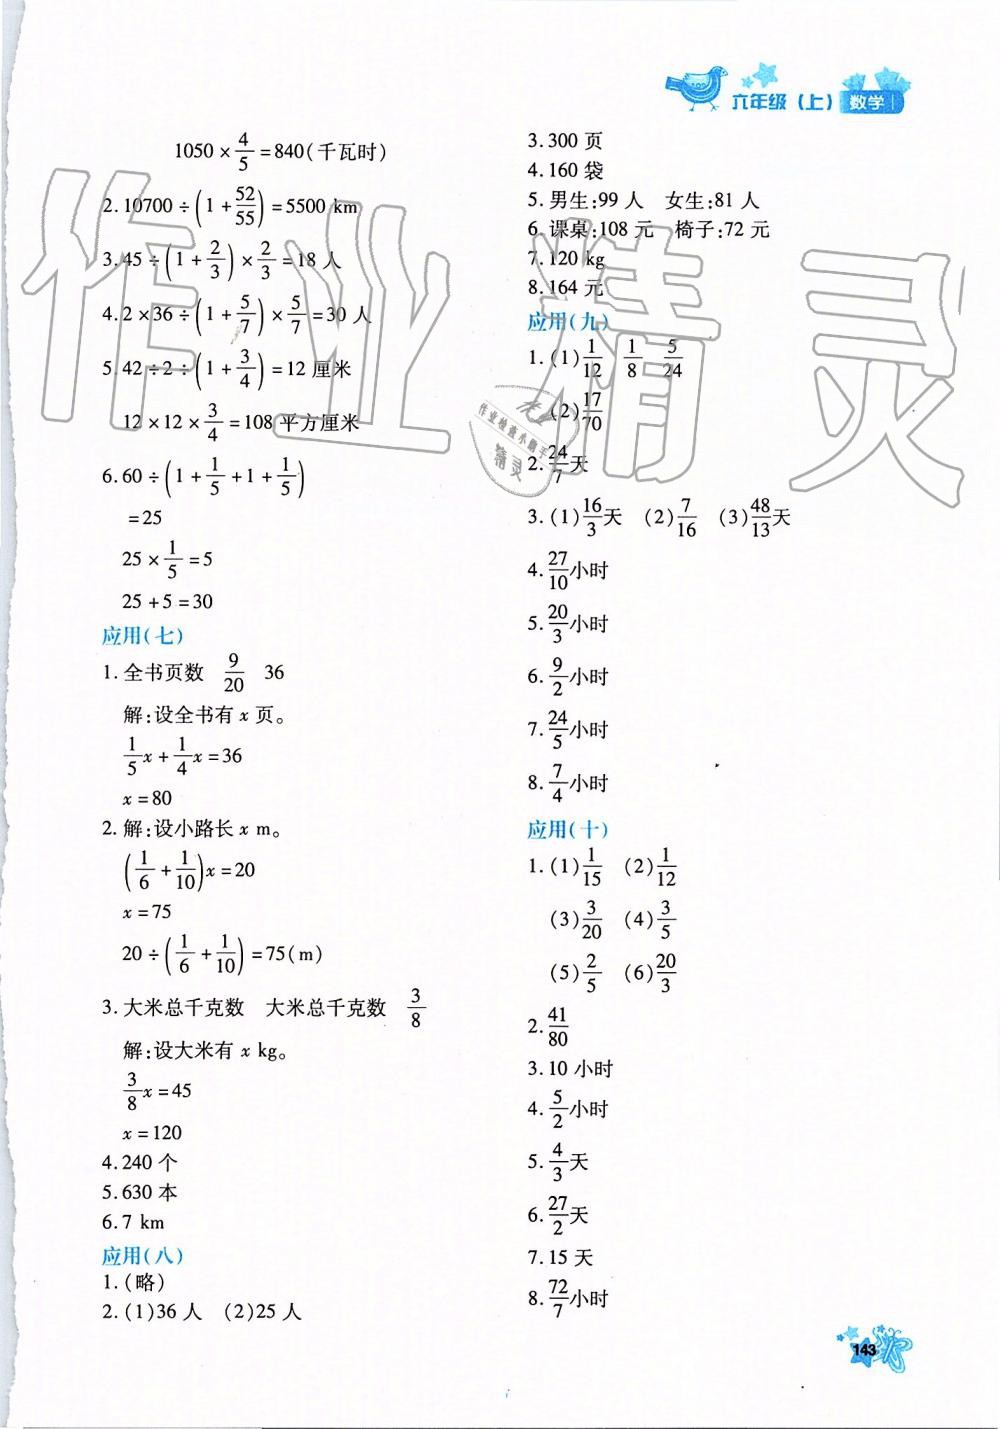 六年级(上) 数学
1050×4/5=840(千瓦时)
2.10700÷(1+52/55)=5500 km
3.45÷(1+2/3)×2/3=18人
4.2×36÷(1+5/7)×5/7=30人
5.42÷2÷(1+3/4)=12厘米
12×12×3/4=108平方厘米
6.60÷(1+1/5+1+1/5)
=25
25×1/5=5
25+5=30
应用(七)
1.全书页数 9/20 36
解:设全书有x页。
1/5x+1/4x=36
x=80
2.解:设小路长x m。
(1/6+1/10)x=20
x=75
20÷(1/6+1/10)=75(m)
3.大米总千克数 大米总千克数 3/8
解:设大米有x kg。
3/8x=45
x=120
4.240个
5.630本
6.7 km
应用(八)
1.(略)
2.(1)36人 (2)25人
3.300页
4.160袋
5.男生:99人 女生:81人
6.课桌:108元 椅子:72元
7.120 kg
8.164元
应用(九)
1.(1)1/12 1/8 5/24
(2)17/70
2.24/7天
3.(1)16/3天 (2)7/16 (3)48/13天
4.27/10小时
5.20/3小时
6.9/2小时
7.24/5小时
8.7/4小时
应用(十)
1.(1)1/15 (2)1/12
(3)3/20 (4)3/5
(5)2/5 (6)20/3
2.41/80
3.10小时
4.5/2小时
5.4/3天
6.27/2天
7.15天
8.72/7小时
143
作业精灵
作业检查小助手
精灵